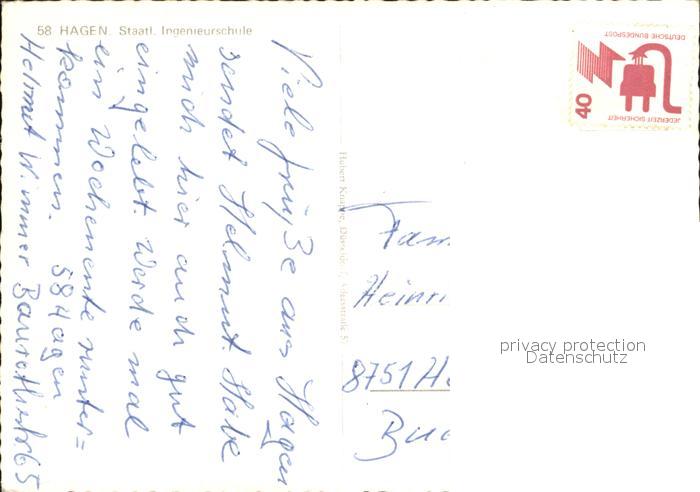 58 HAGEN. Staatl. Ingenieurschule
Viele Grüße aus Hagen
sendet Helmut. Habe
mich hier auch gut
eingelebt. Werde mal
ein Wochenente runter=
kommen.
58 Hagen
Helmut Wimmer 65
Hubert Düsseldorf
DEUTSCHE BUNDESPOST
JEDERZEIT SICHERHEIT
40
Fam
Heinri
8751 H
privacy protection
Datenschutz